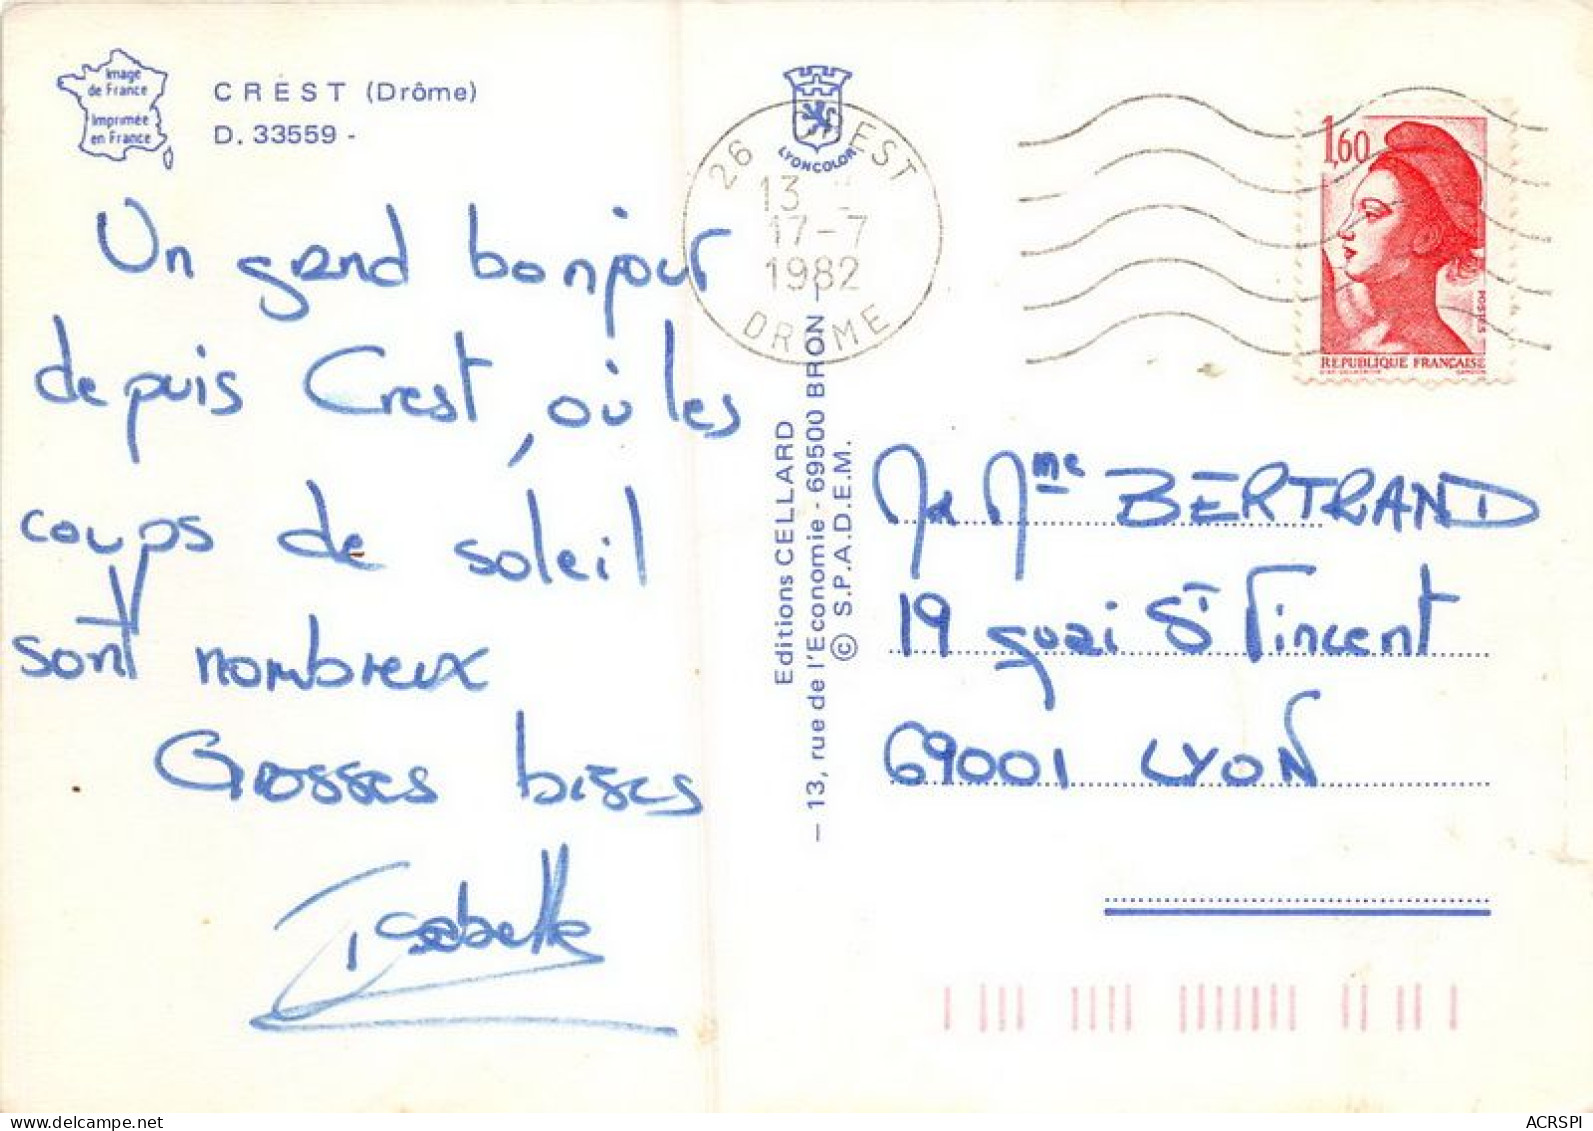 Image
de France
Imprimée
en France
CREST (Drôme)
D. 33559 -
Un grand bonjour
depuis Crest, où les
coups de soleil
sont nombreux
Grosses bises
Isabelle
LYONCOLOR
26 CREST
13
17-7
1982
DROME
Editions CELLARD
— 13, rue de l'Economie - 69500 BRON —
© S.P.A.D.E.M.
1,60
POSTES
REPUBLIQUE FRANÇAISE
M & Mme BERTRAND
19 quai St Vincent
69001 LYON
ACRSPI
www.delcampe.net